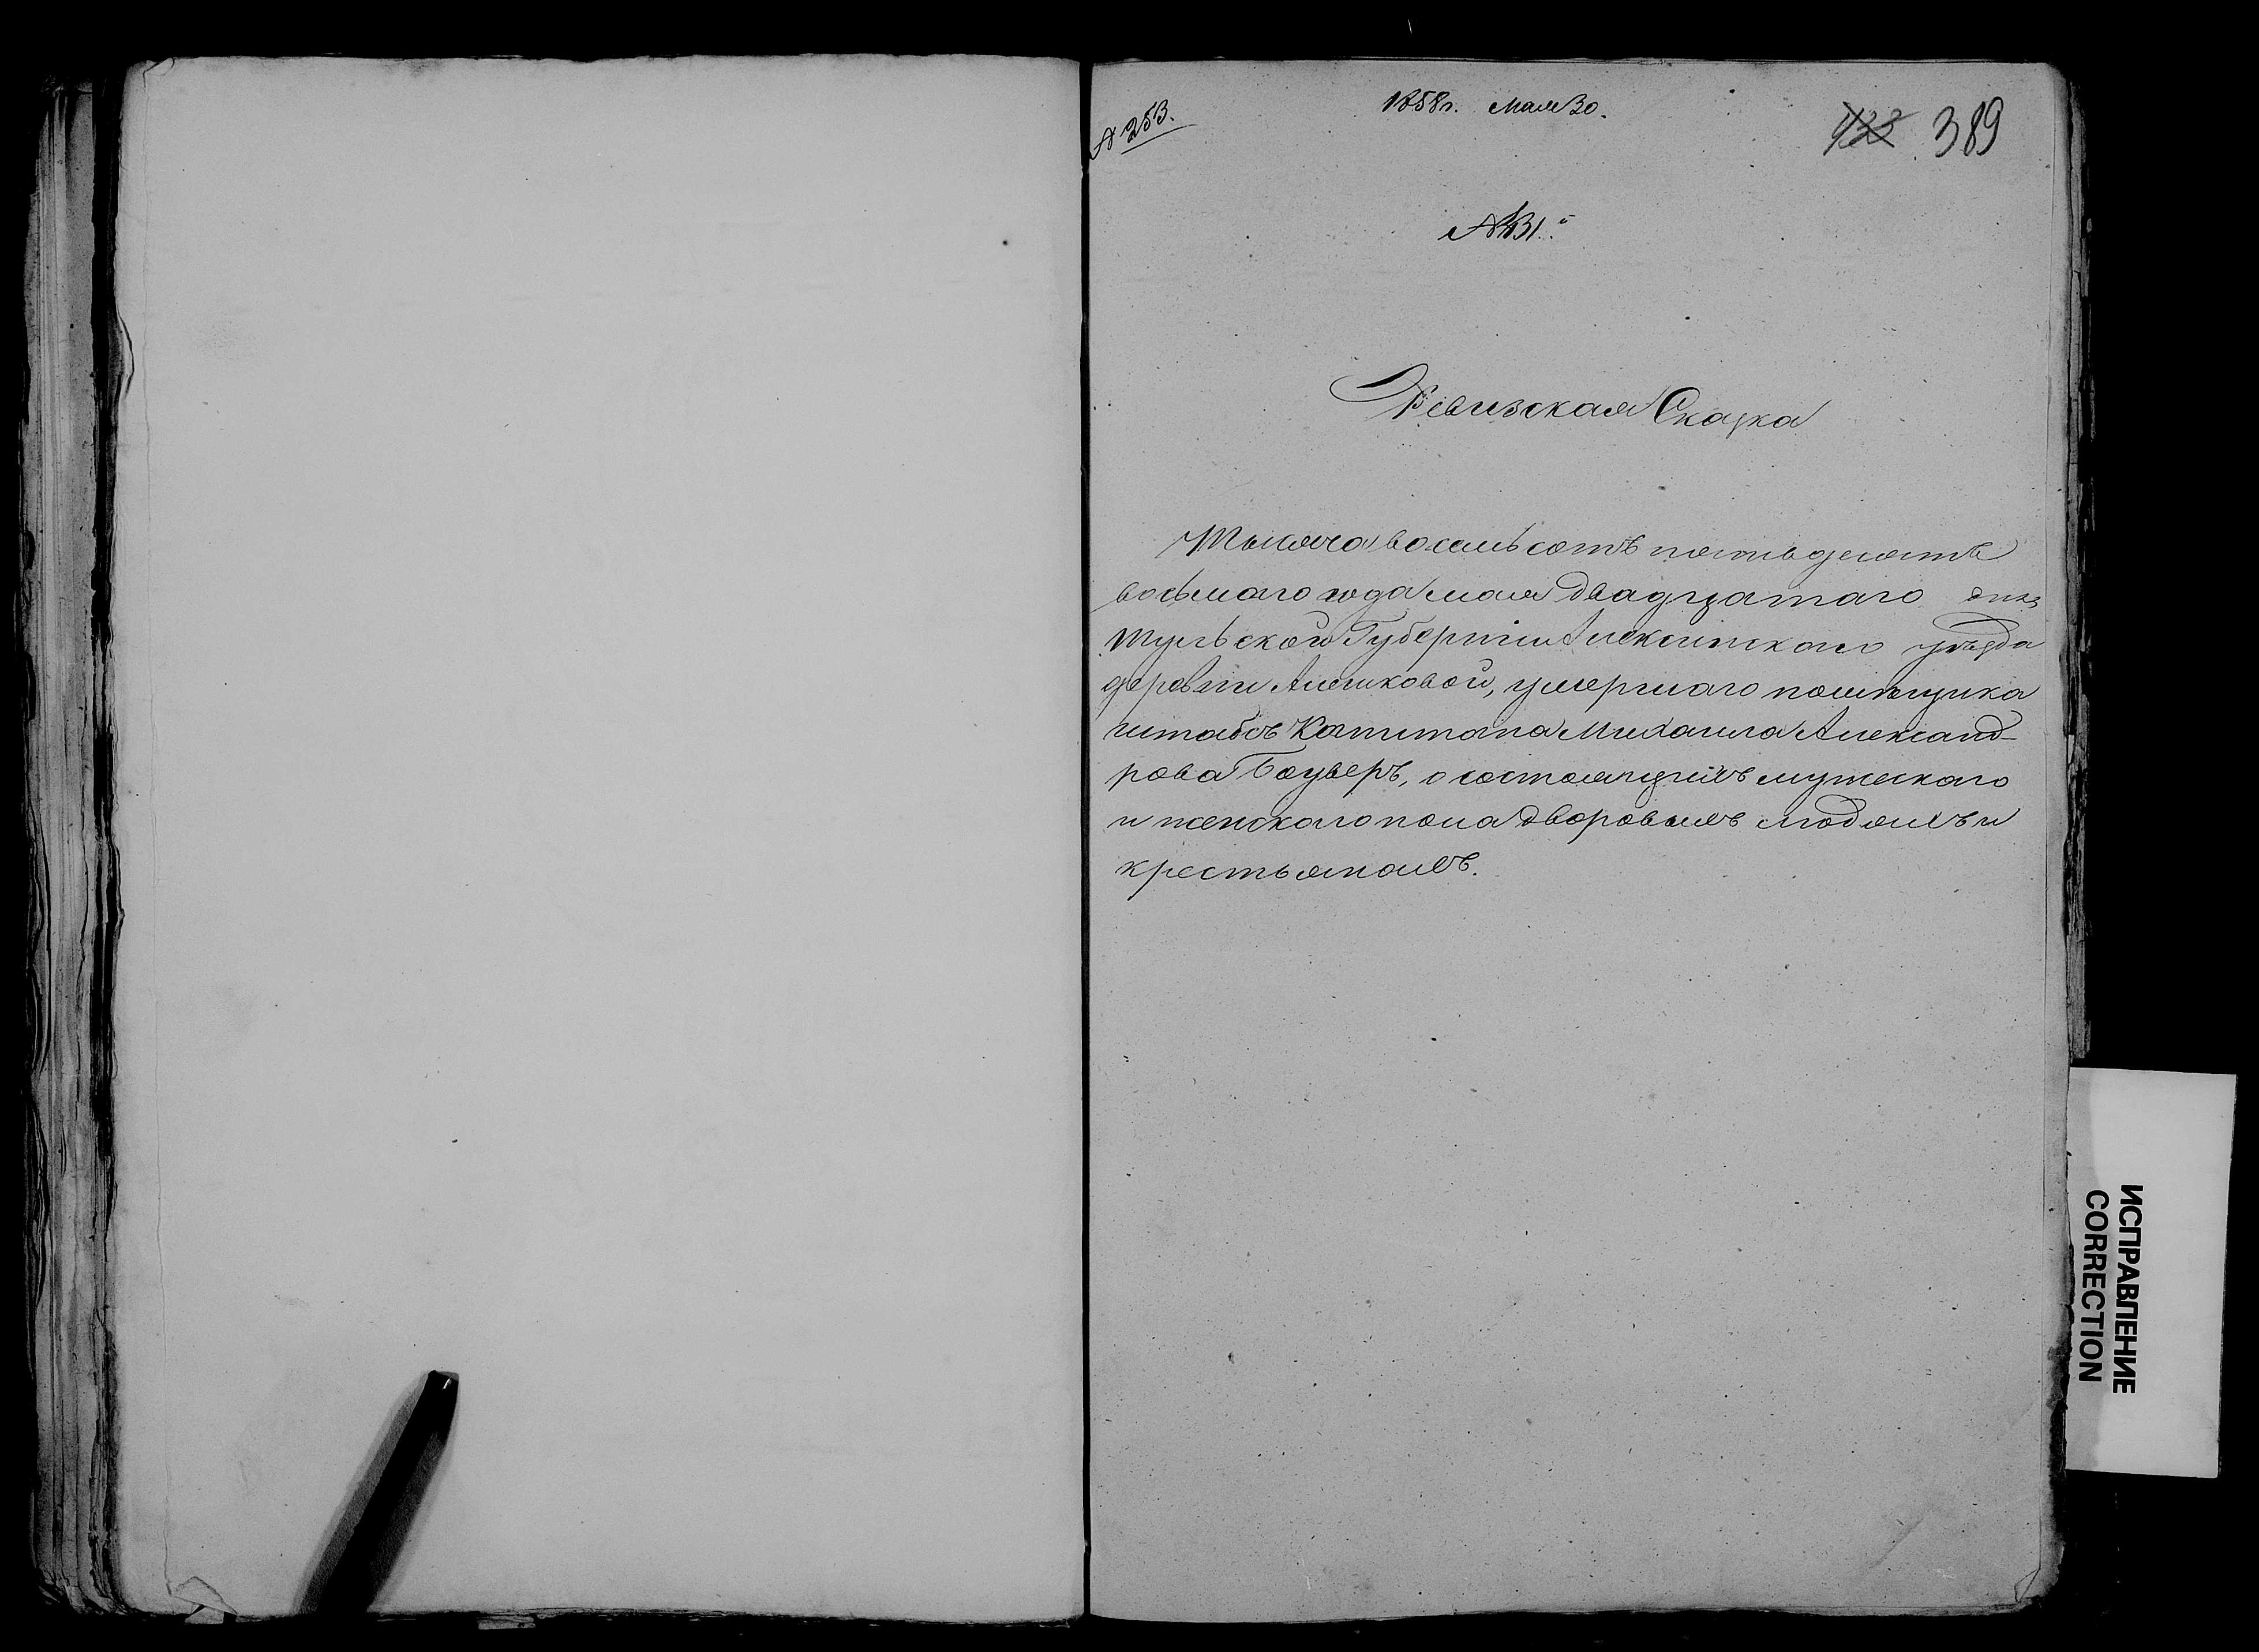 № 253.
1858 г. Мая 30.
433 389
№ 131.й
Ревизская Сказка
Тысяча восемь сотъ пятьдесятъ
восьмаго года мая двадцатаго дня
Тульской Губерніи Алексинскаго уѣзда
деревни Алешковой, умершаго помѣщика
штабсъ Капитана Михаила Александ-
рова Боуверъ, о состоящихъ мужескаго
и женскаго пола дворовымъ людямъ и
крестьянамъ.
ИСПРАВЛЕНИЕ
CORRECTION